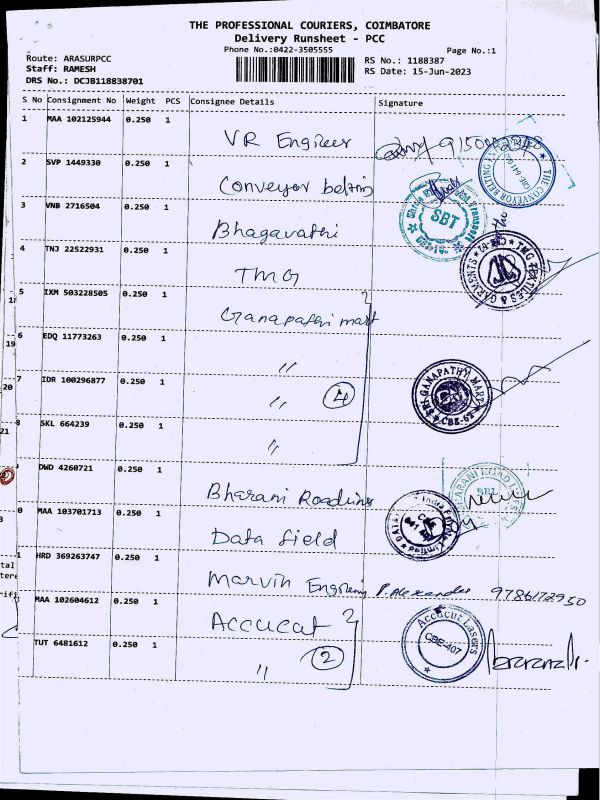 THE PROFESSIONAL COURIERS, COIMBATORE
Delivery Runsheet - PCC
Phone No.:0422-3505555
Page No.:1
Route: ARASURPCC
Staff: RAMESH
DRS No.: DCJB118838701
RS No.: 1188387
RS Date: 15-Jun-2023
S No Consignment No Weight PCS Consignee Details Signature
1 MAA 102125944 0.250 1
VR Engineer
2 SVP 1449330 0.250 1
Conveyor belting
THE CONVEYOR BELTING
3 VNB 2716504 0.250 1
Bhagavathi
SBT
4 TNJ 22522931 0.250 1
TMG
TMG TEXTILES & GARMENTS
5 IXM 503228505 0.250 1
Ganapathi mart
6 EDQ 11773263 0.250 1
〃
7 IDR 100296877 0.250 1
〃 4
SRI GANAPATHY MART
CBE-62
8 SKL 664239 0.250 1
〃
DWD 4260721 0.250 1
Bharani Roadlines
0 MAA 103701713 0.250 1
Data field
1 HRD 369263747 0.250 1
Marvin Engineering P. Alexander 9786172950
MAA 102604612 0.250 1
Accucat
Accucut Lasers
CBE-407
TUT 6481612 0.250 1
〃 2